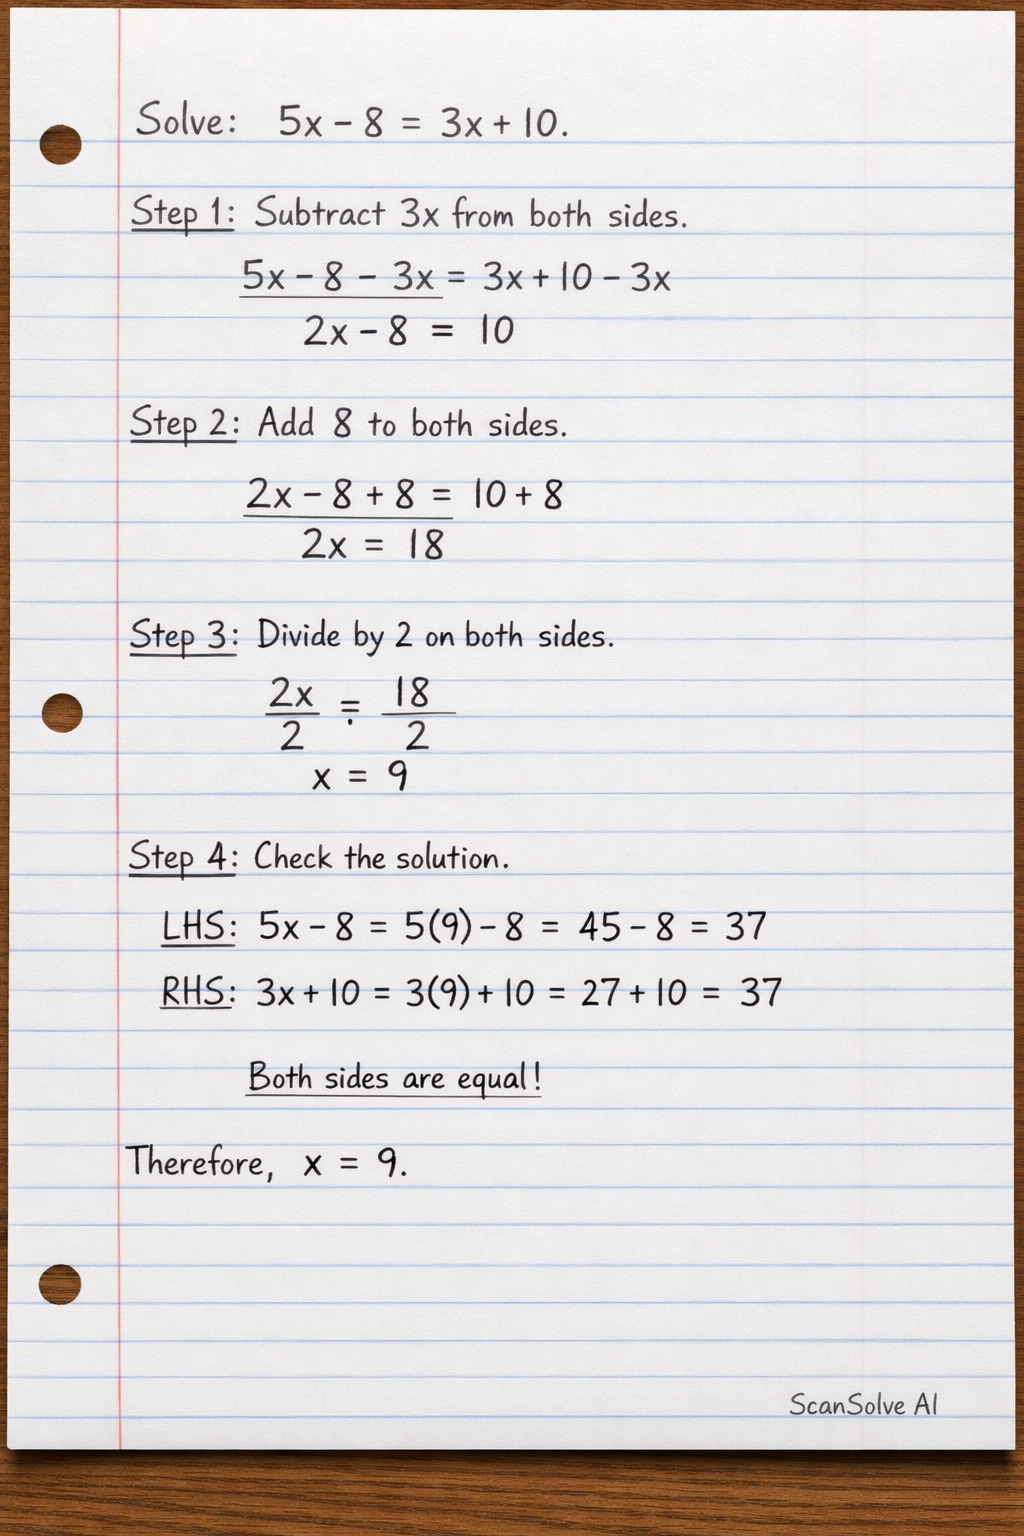 Solve: 5x - 8 = 3x + 10.
Step 1: Subtract 3x from both sides.
5x - 8 - 3x = 3x + 10 - 3x
2x - 8 = 10
Step 2: Add 8 to both sides.
2x - 8 + 8 = 10 + 8
2x = 18
Step 3: Divide by 2 on both sides.
2x/2 = 18/2
x = 9
Step 4: Check the solution.
LHS: 5x - 8 = 5(9) - 8 = 45 - 8 = 37
RHS: 3x + 10 = 3(9) + 10 = 27 + 10 = 37
Both sides are equal!
Therefore, x = 9.
ScanSolve AI